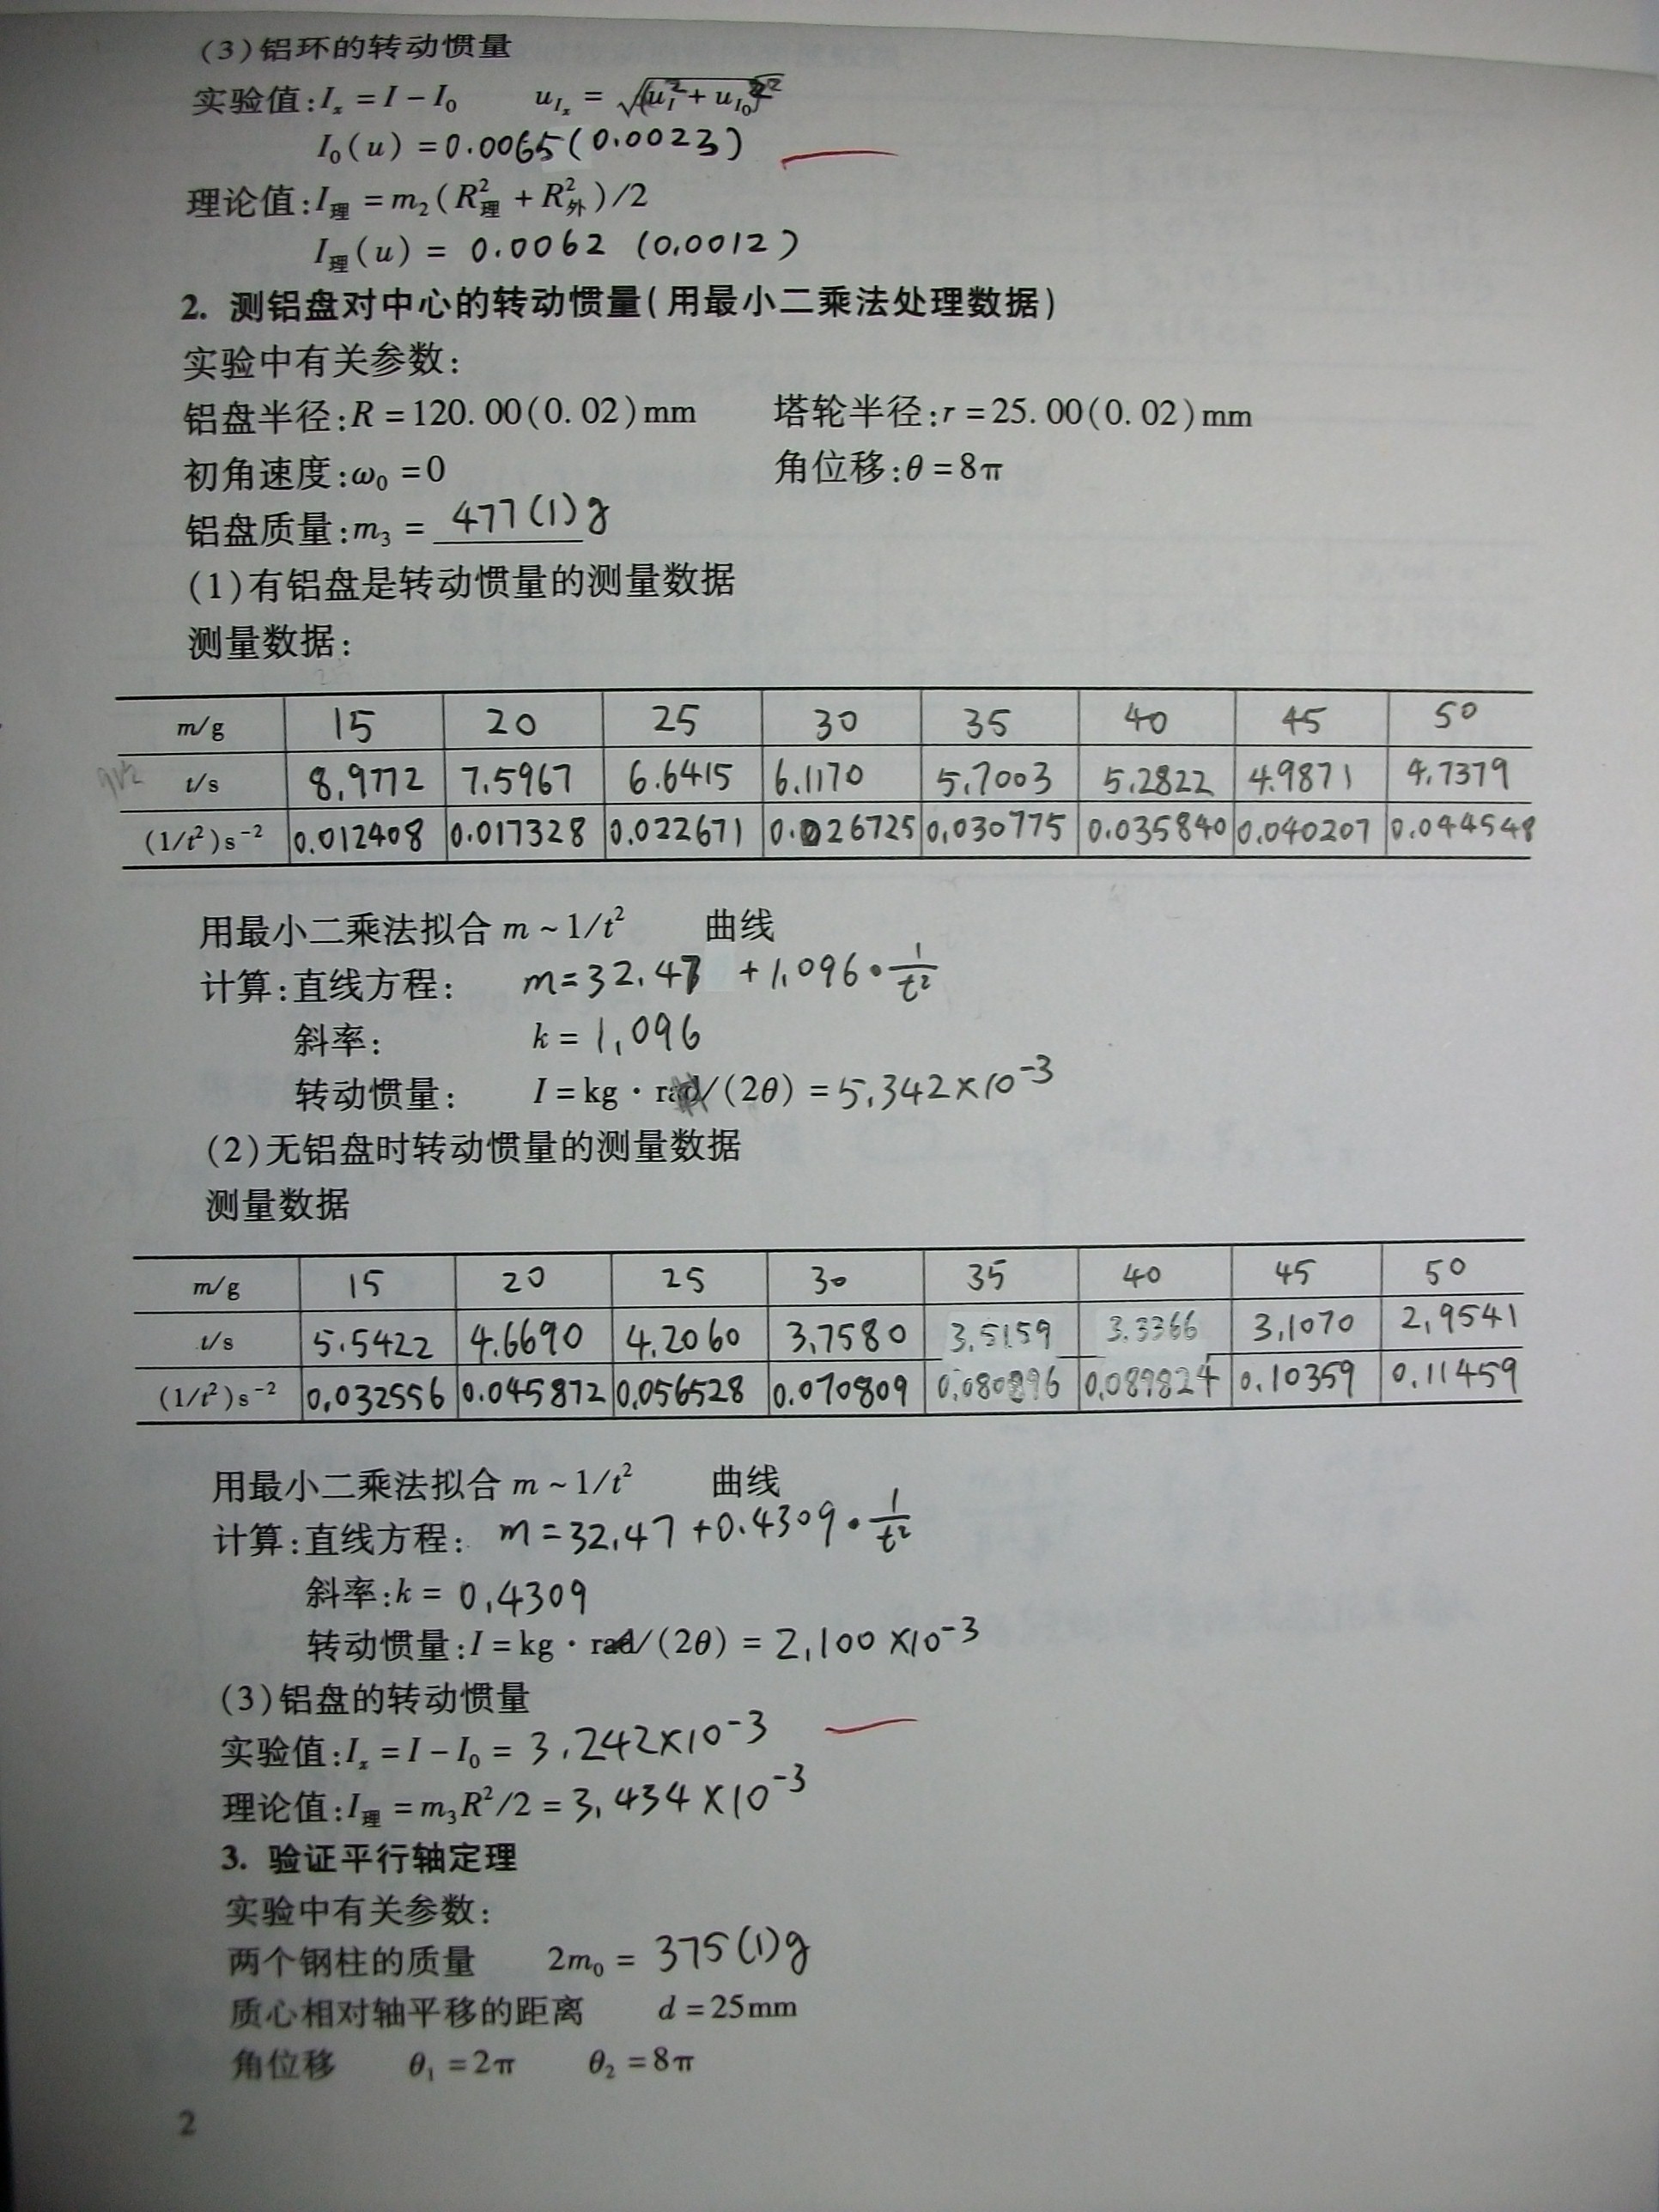 (3)铝环的转动惯量
实验值:Iₓ = I − I₀ u_Iₓ = √(u_I² + u_I₀²)
I₀(u) = 0.0065(0.0023)
理论值:I理 = m₂(R²理 + R²外)/2
I理(u) = 0.0062 (0.0012)
2. 测铝盘对中心的转动惯量(用最小二乘法处理数据)
实验中有关参数:
铝盘半径:R = 120.00(0.02)mm 塔轮半径:r = 25.00(0.02)mm
初角速度:ω₀ = 0 角位移:θ = 8π
铝盘质量:m₃ = 477(1)g
(1)有铝盘是转动惯量的测量数据
测量数据:
m/g 15 20 25 30 35 40 45 50
t/s 8.9772 7.5967 6.6415 6.1170 5.7003 5.2822 4.9871 4.7379
(1/t²)s⁻² 0.012408 0.017328 0.022671 0.026725 0.030775 0.035840 0.040207 0.044548
用最小二乘法拟合 m ~ 1/t² 曲线
计算:直线方程: m=32.47 +1.096·1/t²
斜率: k = 1.096
转动惯量: I = kg · r/(2θ) = 5.342×10⁻³
(2)无铝盘时转动惯量的测量数据
测量数据
m/g 15 20 25 30 35 40 45 50
t/s 5.5422 4.6690 4.2060 3.7580 3.5159 3.3366 3.1070 2.9541
(1/t²)s⁻² 0.032556 0.045872 0.056528 0.070809 0.080896 0.089824 0.10359 0.11459
用最小二乘法拟合 m ~ 1/t² 曲线
计算:直线方程: m=32.47 +0.4309·1/t²
斜率:k = 0.4309
转动惯量:I = kg · r/(2θ) = 2.100×10⁻³
(3)铝盘的转动惯量
实验值:Iₓ = I − I₀ = 3.242×10⁻³
理论值:I理 = m₃R²/2 = 3.434×10⁻³
3. 验证平行轴定理
实验中有关参数:
两个钢柱的质量 2m₀ = 375(1)g
质心相对轴平移的距离 d = 25mm
角位移 θ₁ = 2π θ₂ = 8π
2